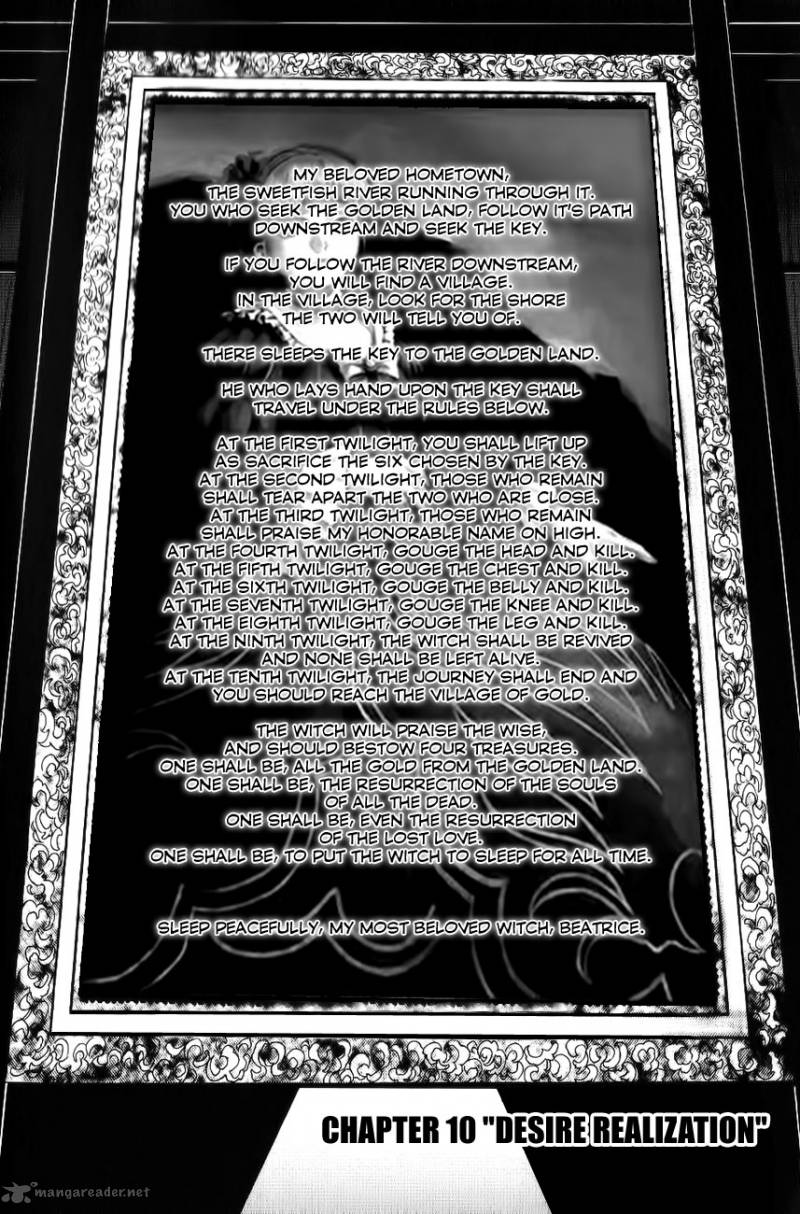 MY BELOVED HOMETOWN,
THE SWEETFISH RIVER RUNNING THROUGH IT.
YOU WHO SEEK THE GOLDEN LAND, FOLLOW IT'S PATH
DOWNSTREAM AND SEEK THE KEY.
IF YOU FOLLOW THE RIVER DOWNSTREAM,
YOU WILL FIND A VILLAGE.
IN THE VILLAGE, LOOK FOR THE SHORE
THE TWO WILL TELL YOU OF.
THERE SLEEPS THE KEY TO THE GOLDEN LAND.
HE WHO LAYS HAND UPON THE KEY SHALL
TRAVEL UNDER THE RULES BELOW.
AT THE FIRST TWILIGHT, YOU SHALL LIFT UP
AS SACRIFICE THE SIX CHOSEN BY THE KEY.
AT THE SECOND TWILIGHT, THOSE WHO REMAIN
SHALL TEAR APART THE TWO WHO ARE CLOSE.
AT THE THIRD TWILIGHT, THOSE WHO REMAIN
SHALL PRAISE MY HONORABLE NAME ON HIGH.
AT THE FOURTH TWILIGHT, GOUGE THE HEAD AND KILL.
AT THE FIFTH TWILIGHT, GOUGE THE CHEST AND KILL.
AT THE SIXTH TWILIGHT, GOUGE THE BELLY AND KILL.
AT THE SEVENTH TWILIGHT, GOUGE THE KNEE AND KILL.
AT THE EIGHTH TWILIGHT, GOUGE THE LEG AND KILL.
AT THE NINTH TWILIGHT, THE WITCH SHALL BE REVIVED
AND NONE SHALL BE LEFT ALIVE.
AT THE TENTH TWILIGHT, THE JOURNEY SHALL END AND
YOU SHOULD REACH THE VILLAGE OF GOLD.
THE WITCH WILL PRAISE THE WISE,
AND SHOULD BESTOW FOUR TREASURES.
ONE SHALL BE, ALL THE GOLD FROM THE GOLDEN LAND.
ONE SHALL BE, THE RESURRECTION OF THE SOULS
OF ALL THE DEAD.
ONE SHALL BE, EVEN THE RESURRECTION
OF THE LOST LOVE.
ONE SHALL BE, TO PUT THE WITCH TO SLEEP FOR ALL TIME.
SLEEP PEACEFULLY, MY MOST BELOVED WITCH, BEATRICE.
CHAPTER 10 "DESIRE REALIZATION"
mangareader.net